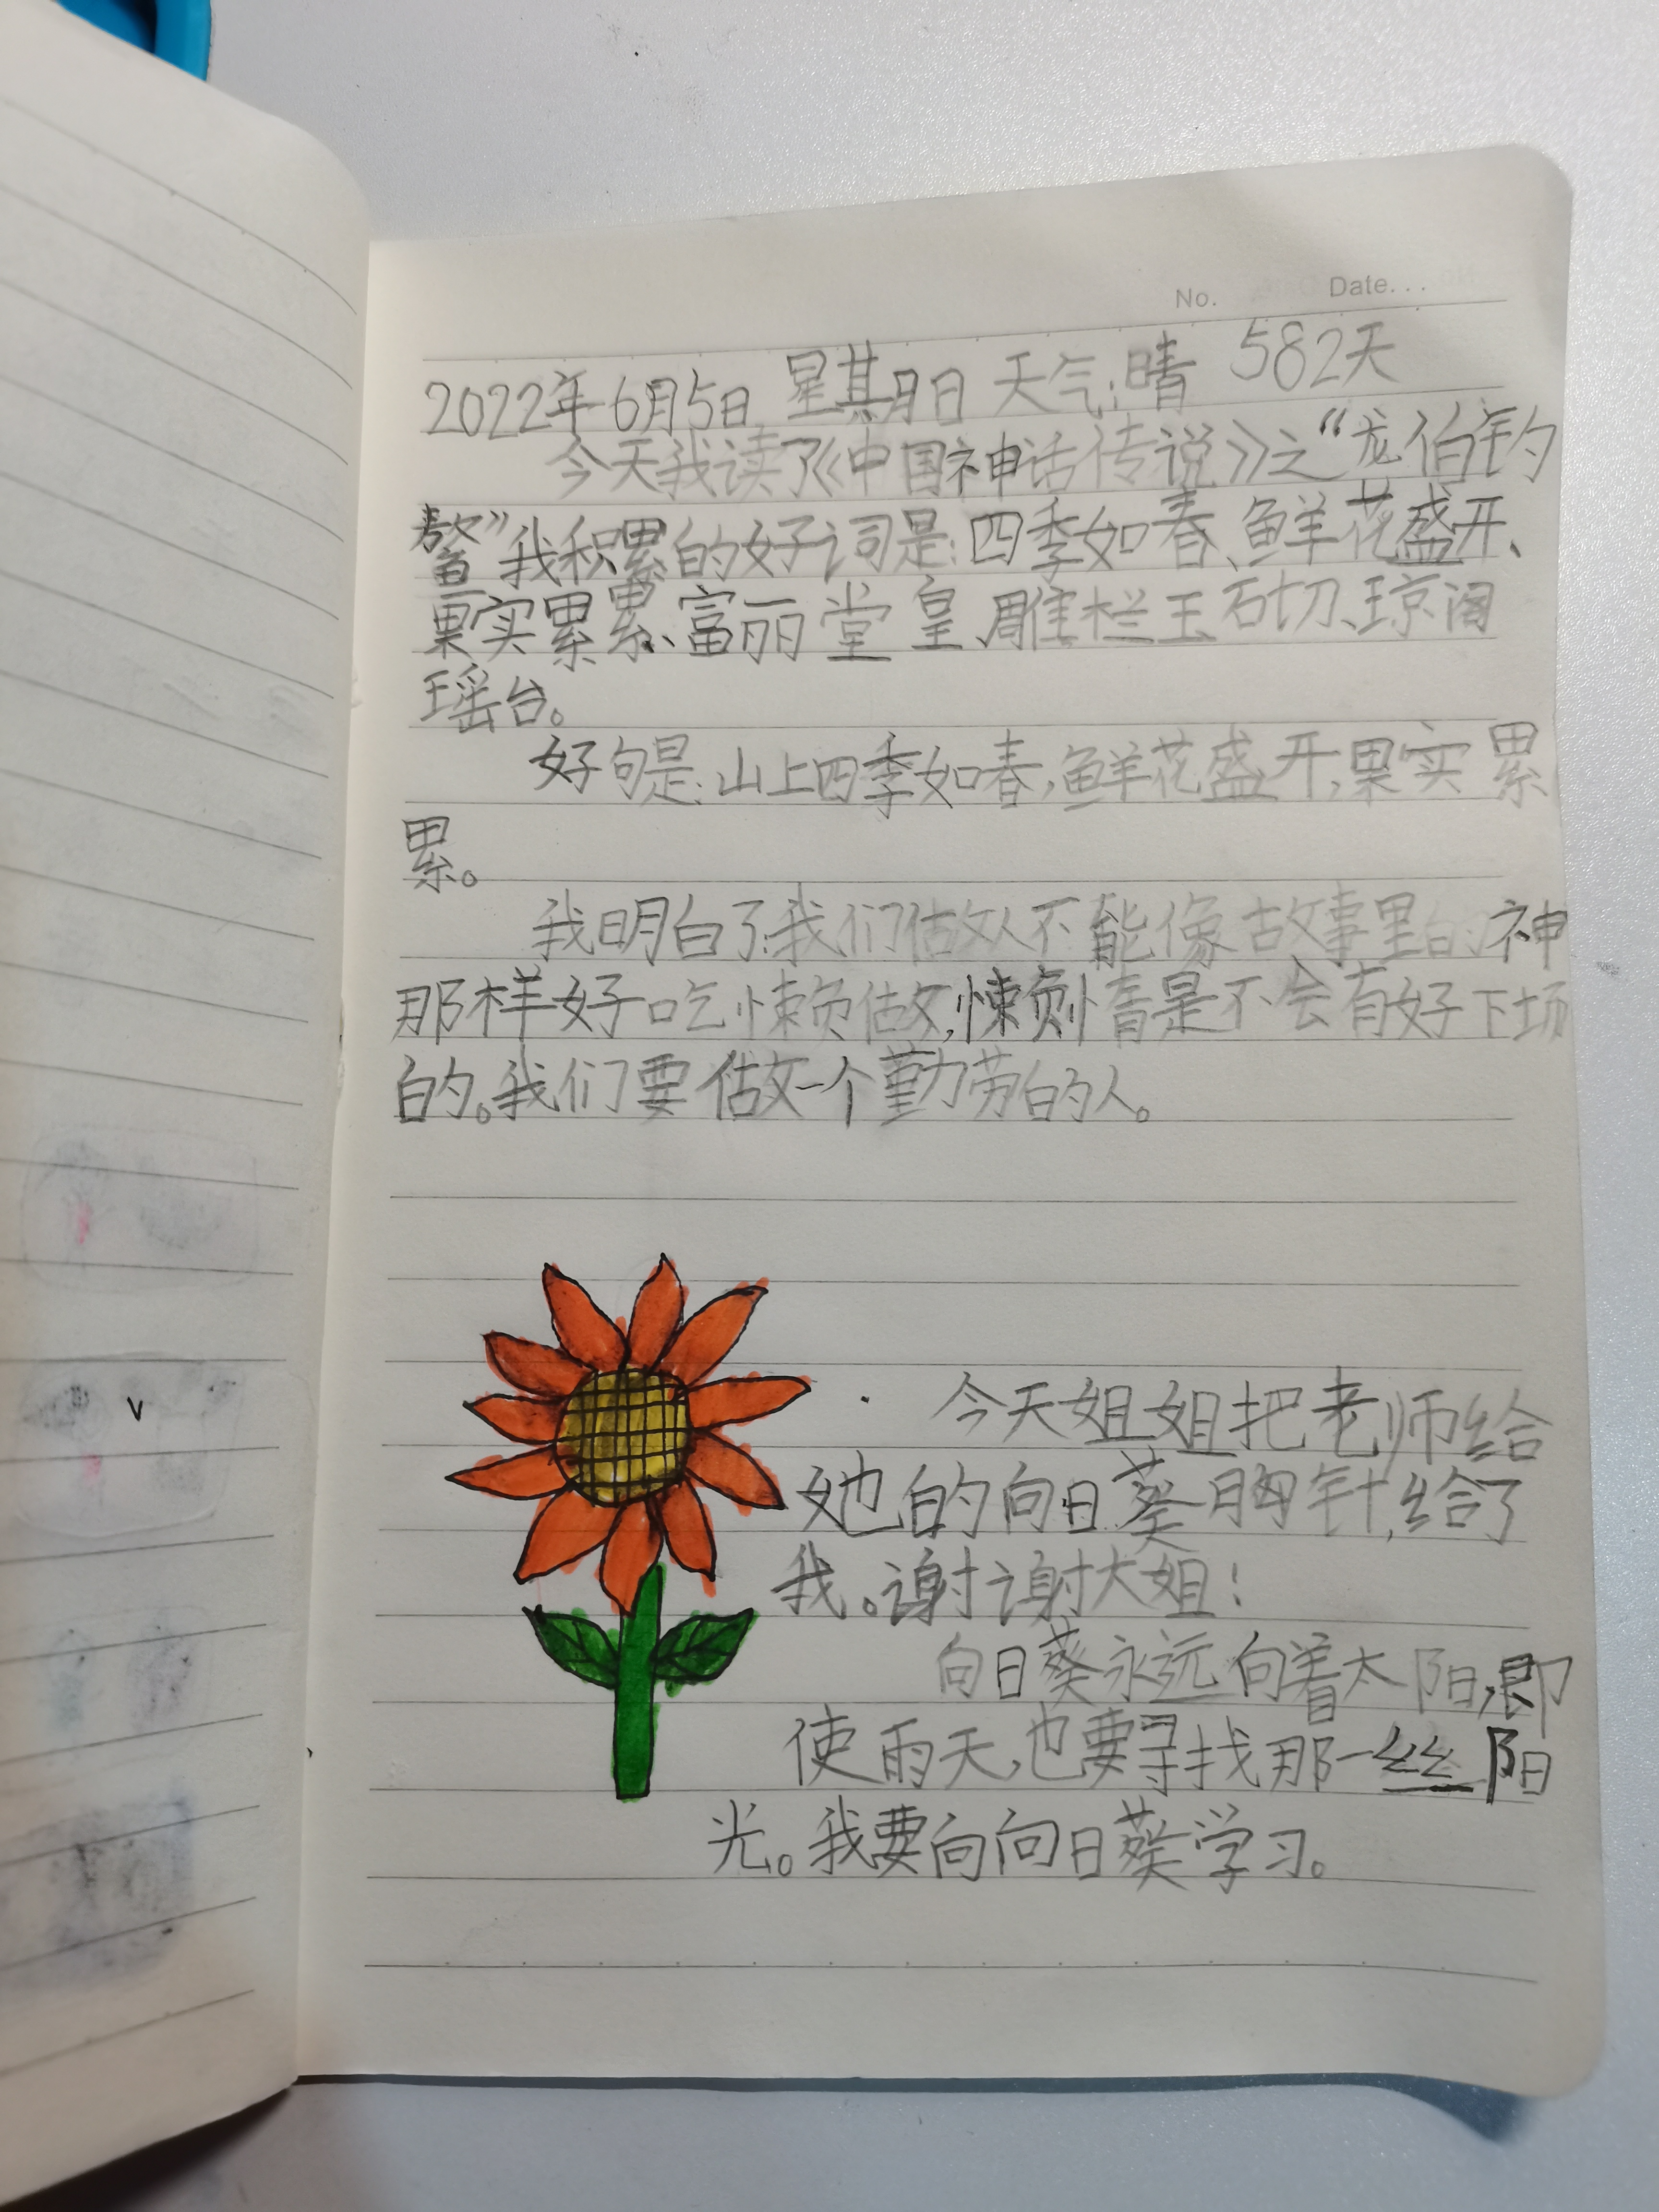 No. Date...
2022年6月5日 星期日 天气:晴 582天
今天我读了《中国神话传说》之“龙伯钓
鳌”我积累的好词是:四季如春、鲜花盛开、
果实累累、富丽堂皇、雕栏玉砌、琼阁
瑶台。
好句是:山上四季如春,鲜花盛开,果实累
累。
我明白了:我们做人不能像故事里的神
那样好吃懒做,懒惰是不会有好下场
的。我们要做一个勤劳的人。
今天姐姐把老师给
她的向日葵胸针,给了
我。谢谢大姐!
向日葵永远向着太阳,即
使雨天,也要寻找那一丝阳
光。我要向向日葵学习。